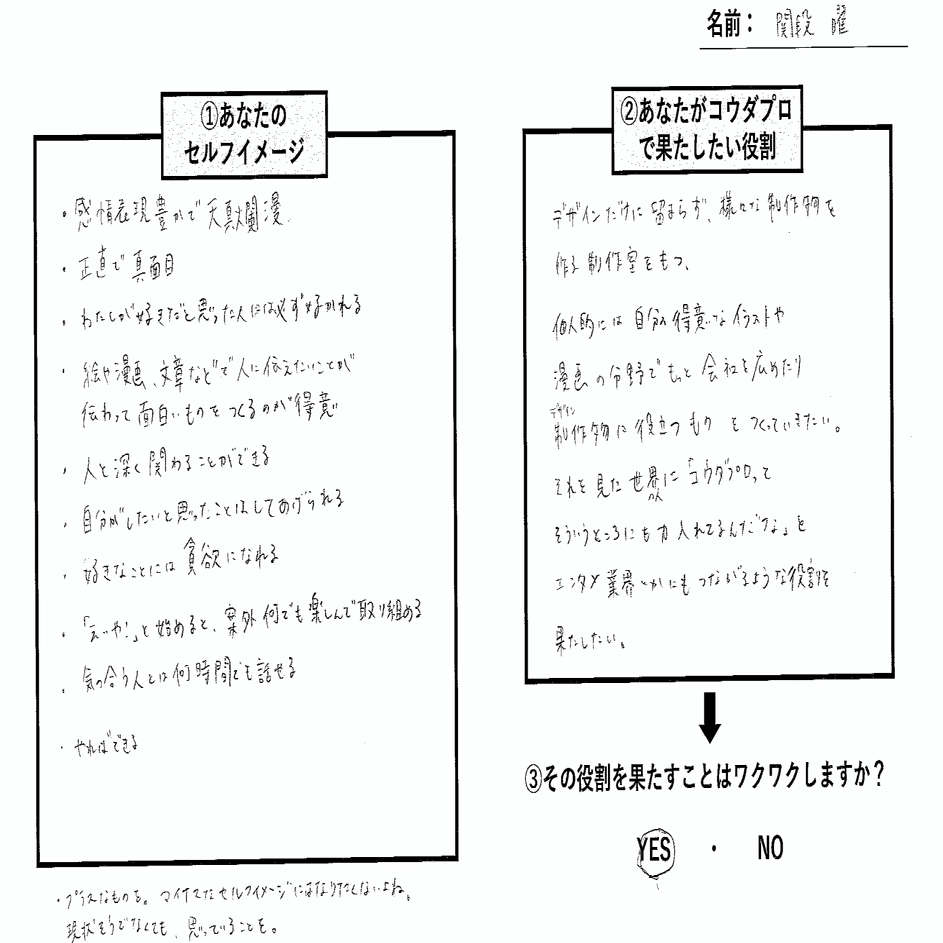 名前： 関段 曜
①あなたの
セルフイメージ
・感情表現豊かで天真爛漫
・正直で真面目
・わたしが好きだと思った人には必ず好かれる
・絵や漫画、文章などで人に伝えたいことが
伝わって面白いものをつくるのが得意
・人と深く関わることができる
・自分がしたいと思ったことはしてあげられる
・好きなことには貪欲になれる
・「えいや！」と始めると、案外何でも楽しんで取り組める
・気の合う人とは何時間でも話せる
・やればできる
・プラスなものを。マイナスなセルフイメージにはなりたくないよね。
現状そうでなくても、思っていることを。
②あなたがコウダプロ
で果たしたい役割
デザインだけに留まらず、様々な制作物を
作る制作室をもつ、
個人的には自分の得意なイラストや
漫画の分野でもっと会社を広めたり
デザイン
制作物に役立つものをつくっていきたい。
それを見た世界に「コウダプロって
の人
そういうところにも力入れてるんだな」を
エンタメ業界とかにもつながるような役割を
果たしたい。
③その役割を果たすことはワクワクしますか？
YES ・ NO